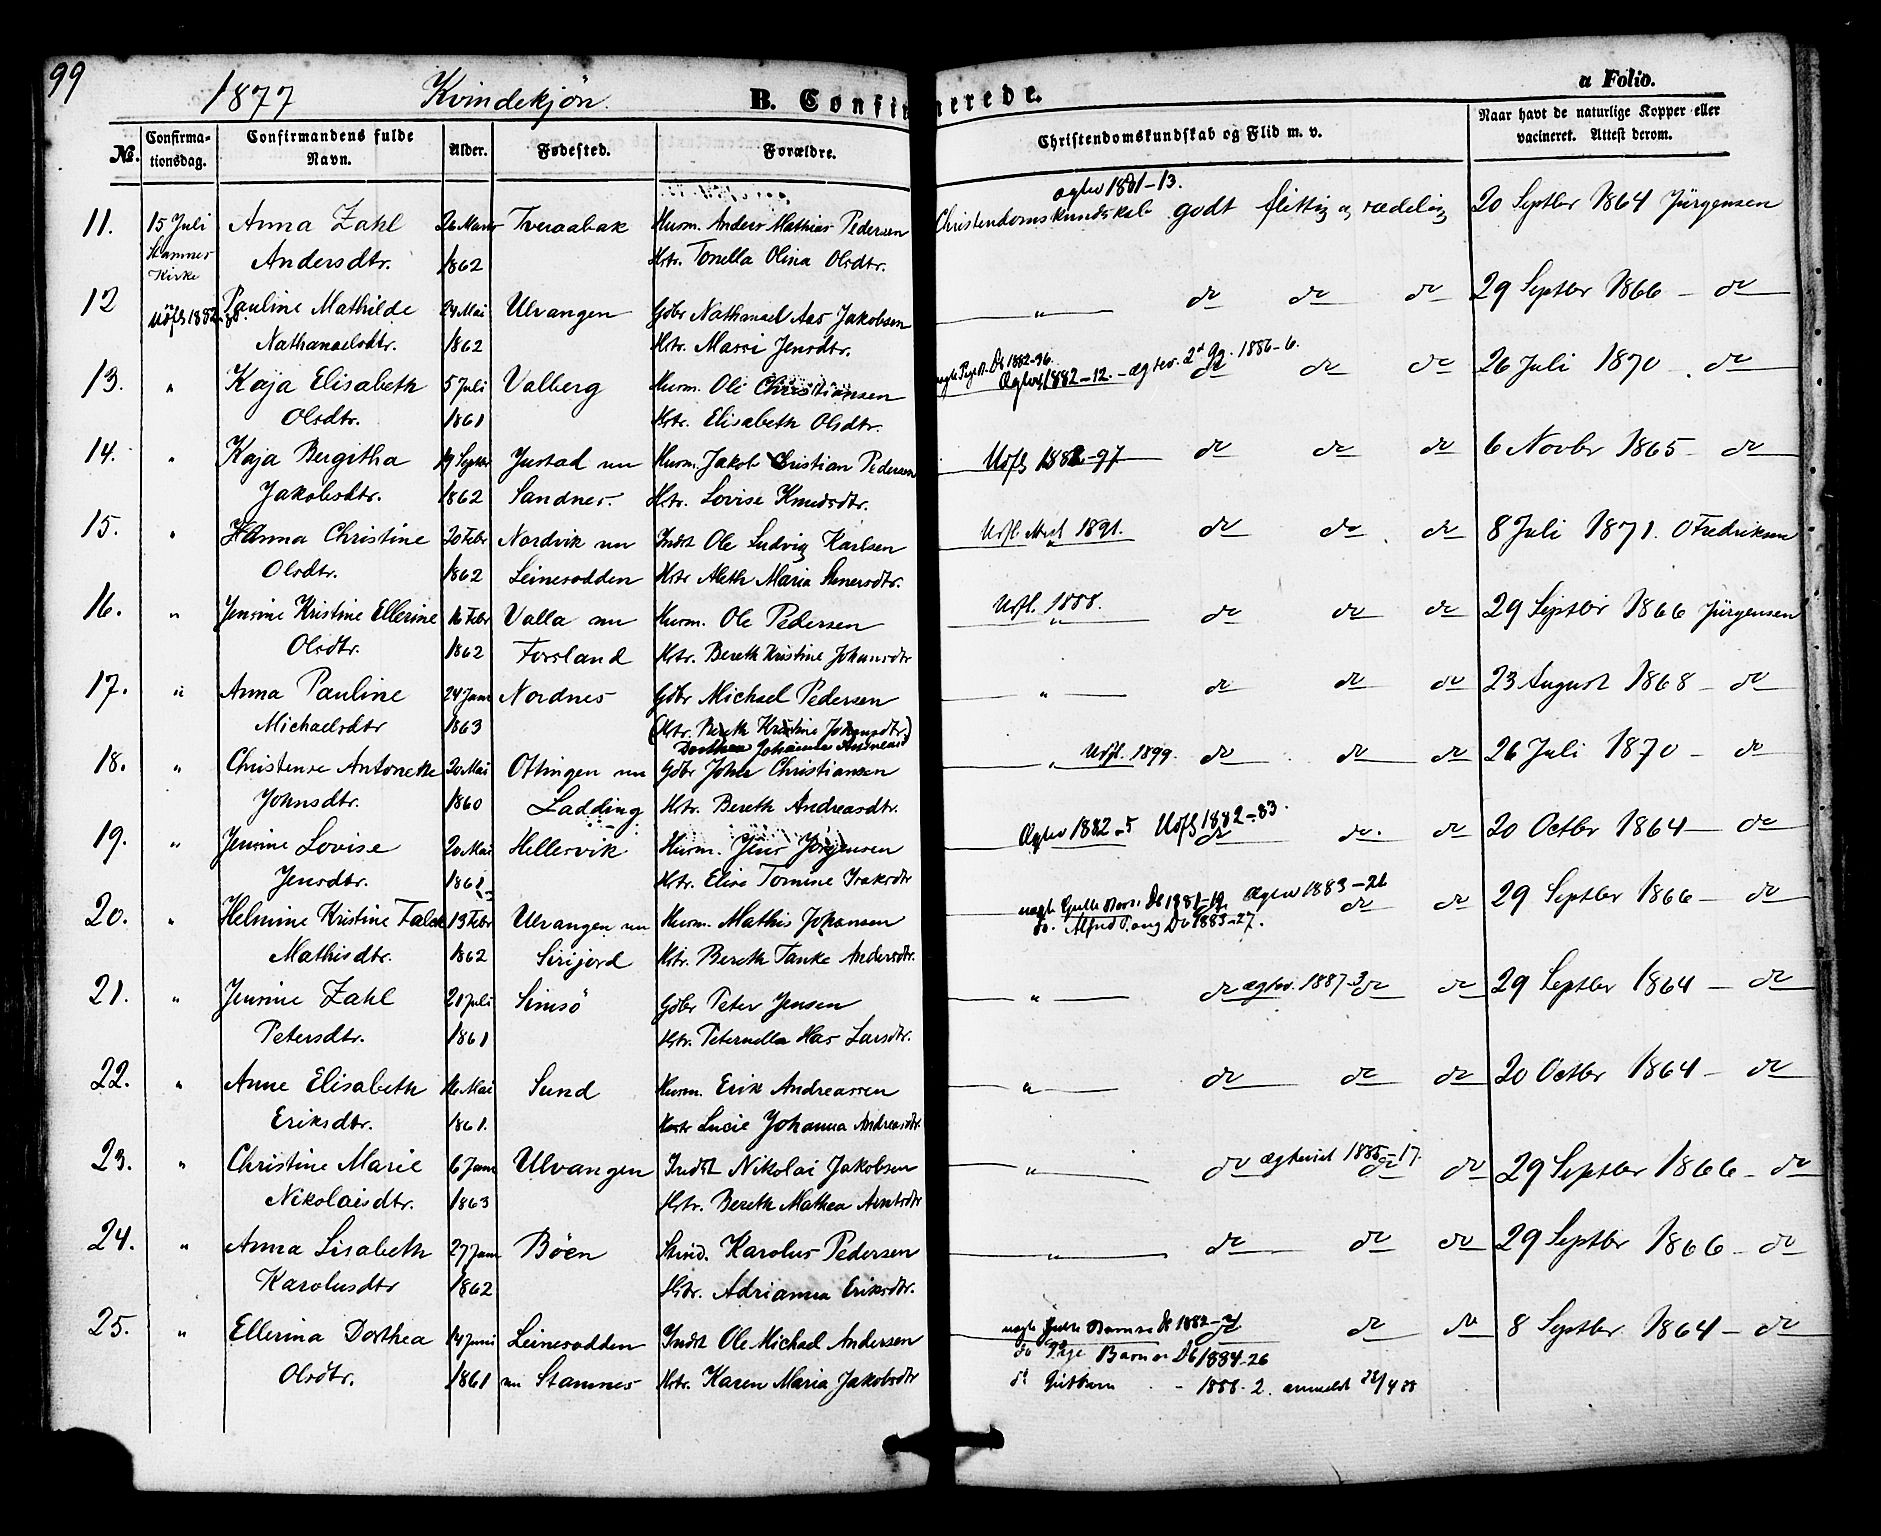 99
1877 Kvindekjøn. B. Confirmerede. a Folio.
No. Confirma-tionsdag. Confirmandens fulde Navn. Alder. Fødested. Forældre. Christendomskundskab og Flid m. v. Naar havt de naturlige Kopper eller vacineret. Attest derom.
ægtev 1881-13.
11. 15 Juli Anna Zahl 26 Marts Tveraabak Husm. Anders Mathias Pedersen Christendomskundskab godt flittig og sædelig 20 Septbr 1864 Jürgensen
Stamnes Kirke Andersdtr. 1862 Hstr. Tonella Olina Olsdtr.
12 Pauline Mathilde 24 Mai Ulvangen Gdbr Nathanael Aas Jakobsen " do do do 29 Septbr 1866 - do
Udfl 1882-98. Nathanaelsdtr. 1862 Hstr. Massi Jensdtr.
Db 1882-96.
13. " Kaja Elisabeth 5 Juli Valberg Husm. Ole Christiansen Ægtev 1882-12. - ægtev. 2d Gg. 1886-6. do do do 26 Juli 1870 - do
Olsdtr. 1861 Hstr. Elisabeth Olsdtr.
14. " Kaja Bergitha 19 Septbr Justad nu Husm. Jakob Christian Pedersen Udfl 1882-97 do do do 6 Novbr 1865 - do
Jakobsdtr. 1862 Sandnes. Hstr. Lovise Knudsdtr.
15. " Hanna Christine 20 Febr Nordvik nu Indst Ole Ludvig Karlsen Udfl. 1891. do do do 8 Juli 1871. O Fredriksen
Olsdtr. 1862 Leinesodden Hstr Aleth Maria Stenersdtr.
16. " Jensine Kristine Ellerine 16 Febr Valla nu Husm. Ole Pedersen Udfl. 1888. " do do do 29 Septbr 1866 Jürgensen
Olsdtr. 1862 Forsland Hstr. Bereth Kristine Johansdtr
17. " Anna Pauline 24 Janr Nordnes Gdbr Michael Pedersen " do do do 23 August 1868 - do
Michaelsdtr 1863 (Hstr. Bereth Kristine Johansdtr.)
Dorthea Johanna Andreasd
18. " Christense Antonette 20 Mai Ottingen nu Gdbr John Christiansen " Udfl. 1899. do do do 26 Juli 1870 - do
Johnsdtr. 1860 Ladding Hstr. Bereth Andreasdtr.
19. " Jensine Lovise 20 Mai Hellesvik Husm. Jens Jørgensen Ægtev 1882-5 Udfl 1882-83. do do do 20 Octbr 1864 - do
Jensdtr. 1861 Hstr. Elise Tomine Isaksdtr
20. " Helmine Kristine Falck 13 Febr Ulvangen nu Husm. Mathis Johansen uægte Db 1881-19. Ægtev 1883-26 do do 29 Septbr 1866 - do
Mathisdtr. 1862 Sirijord Hstr. Bereth Tanke Andersdtr. do. Alfred Db 1883-27.
21. " Jensine Zahl 21 Juli Simsø Gdbr Peter Jensen " do ægtev. 1887-3 do do 29 Septbr 1864 - do
Petersdtr. 1861 Hstr. Peternella Has Larsdtr.
22. " Anne Elisabeth 16 Mai Sund Husm. Erik Andreassen " do do do 20 Octbr 1864 - do
Eriksdtr. 1861. Hstr Lucie Johanna Andreasdtr.
23. " Christine Marie 6 Janr Ulvangen Indst Nikolai Jakobsen " do Ægteviet 1885-17. do do 29 Septbr 1866 - do
Nikolaisdtr. 1863 Hstr. Bereth Mathea Arntsdtr
24. " Anna Lisabeth 27 Janr Bøen Strind. Karolus Pedersen " do do do 29 Septbr 1866 - do
Karolusdtr 1862 Hstr. Adrianna Eriksdtr.
25. " Ellerina Dorthea 14 Juni Leinesodden Indst Ole Michael Andersen uægte do do do 8 Septbr 1864 - do
do Pige Barn Db 1884-26
Olsdtr. 1861 nu Stamnes Hstr. Karen Maria Jakobsdtr do - 1888. 2. anmeldt 28/4 88